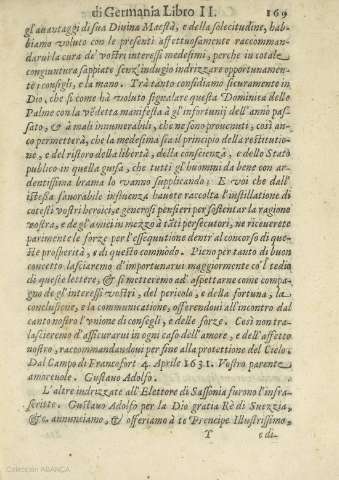 di Germania Libro II. 169
gl'auantaggi di sua Diuina Maestà, e della solecitudine, hab-
biamo voluto con le presenti affettuosamente raccomman-
darui la cura de' vostri interessi medesimi, perche in totale
congiuntura sappiate senz'indugio indrizzare opportunamen-
te i consigli, e la mano. Trà tanto confidiamo sicuramente in
Dio, che si come hà voluto signalare questa Dominica delle
Palme con la vendetta manifesta à gl'infortunij dell'anno pas-
sato, & à mali innumerabili, che ne sono prouenuti, così an-
co permetterà, che la medesima sia il principio della restitutio-
ne, e del ristoro della libertà, della conscienza, e dello Stato
publico in quella guisa, che tutti gl'huomini da bene con ar-
dentissima brama lo vanno supplicando: E voi che dall'
istessa fauorabile influenza hauete raccolta l'instillatione di
cotesti vostri heroici, e generosi pensieri per sostentar la ragione
vostra, e de gl'amici in mezzo à tãti persecutori, ne riceuerete
parimente le forze per l'essequutione dentr'al concorso di que-
ste prosperità, e di questo commodo. Pieno per tanto di buon
concetto lasciaremo d'importunarui maggiormente co'l tedio
di queste lettere, & si metteremo ad'ospettarne come compa-
gno de gl'interessi vostri, del pericolo, e della fortuna, la
conclusione, e la communicatione, offerendoui all'incontro dal
canto nostro l'vnione di consegli, e delle forze. Così non tra-
lasciaremo d'assicurarui in ogni caso dell'amore, e dell'affetto
nostro, raccommandandoui per fine alla protettione del Cielo.
Dal Campo di Francofort 4. Aprile 1631. Vostro parente
amoreuole. Gustauo Adolfo.
L'altre indrizzate all'Elettore di Sassonia furono l'infra-
scritte. Gustauo Adolfo per la Dio gratia Rè di Suezzia,
&c. annunciamo, & offeriamo à te Prencipe Illustrissimo
T e di-
Colección ABANCA